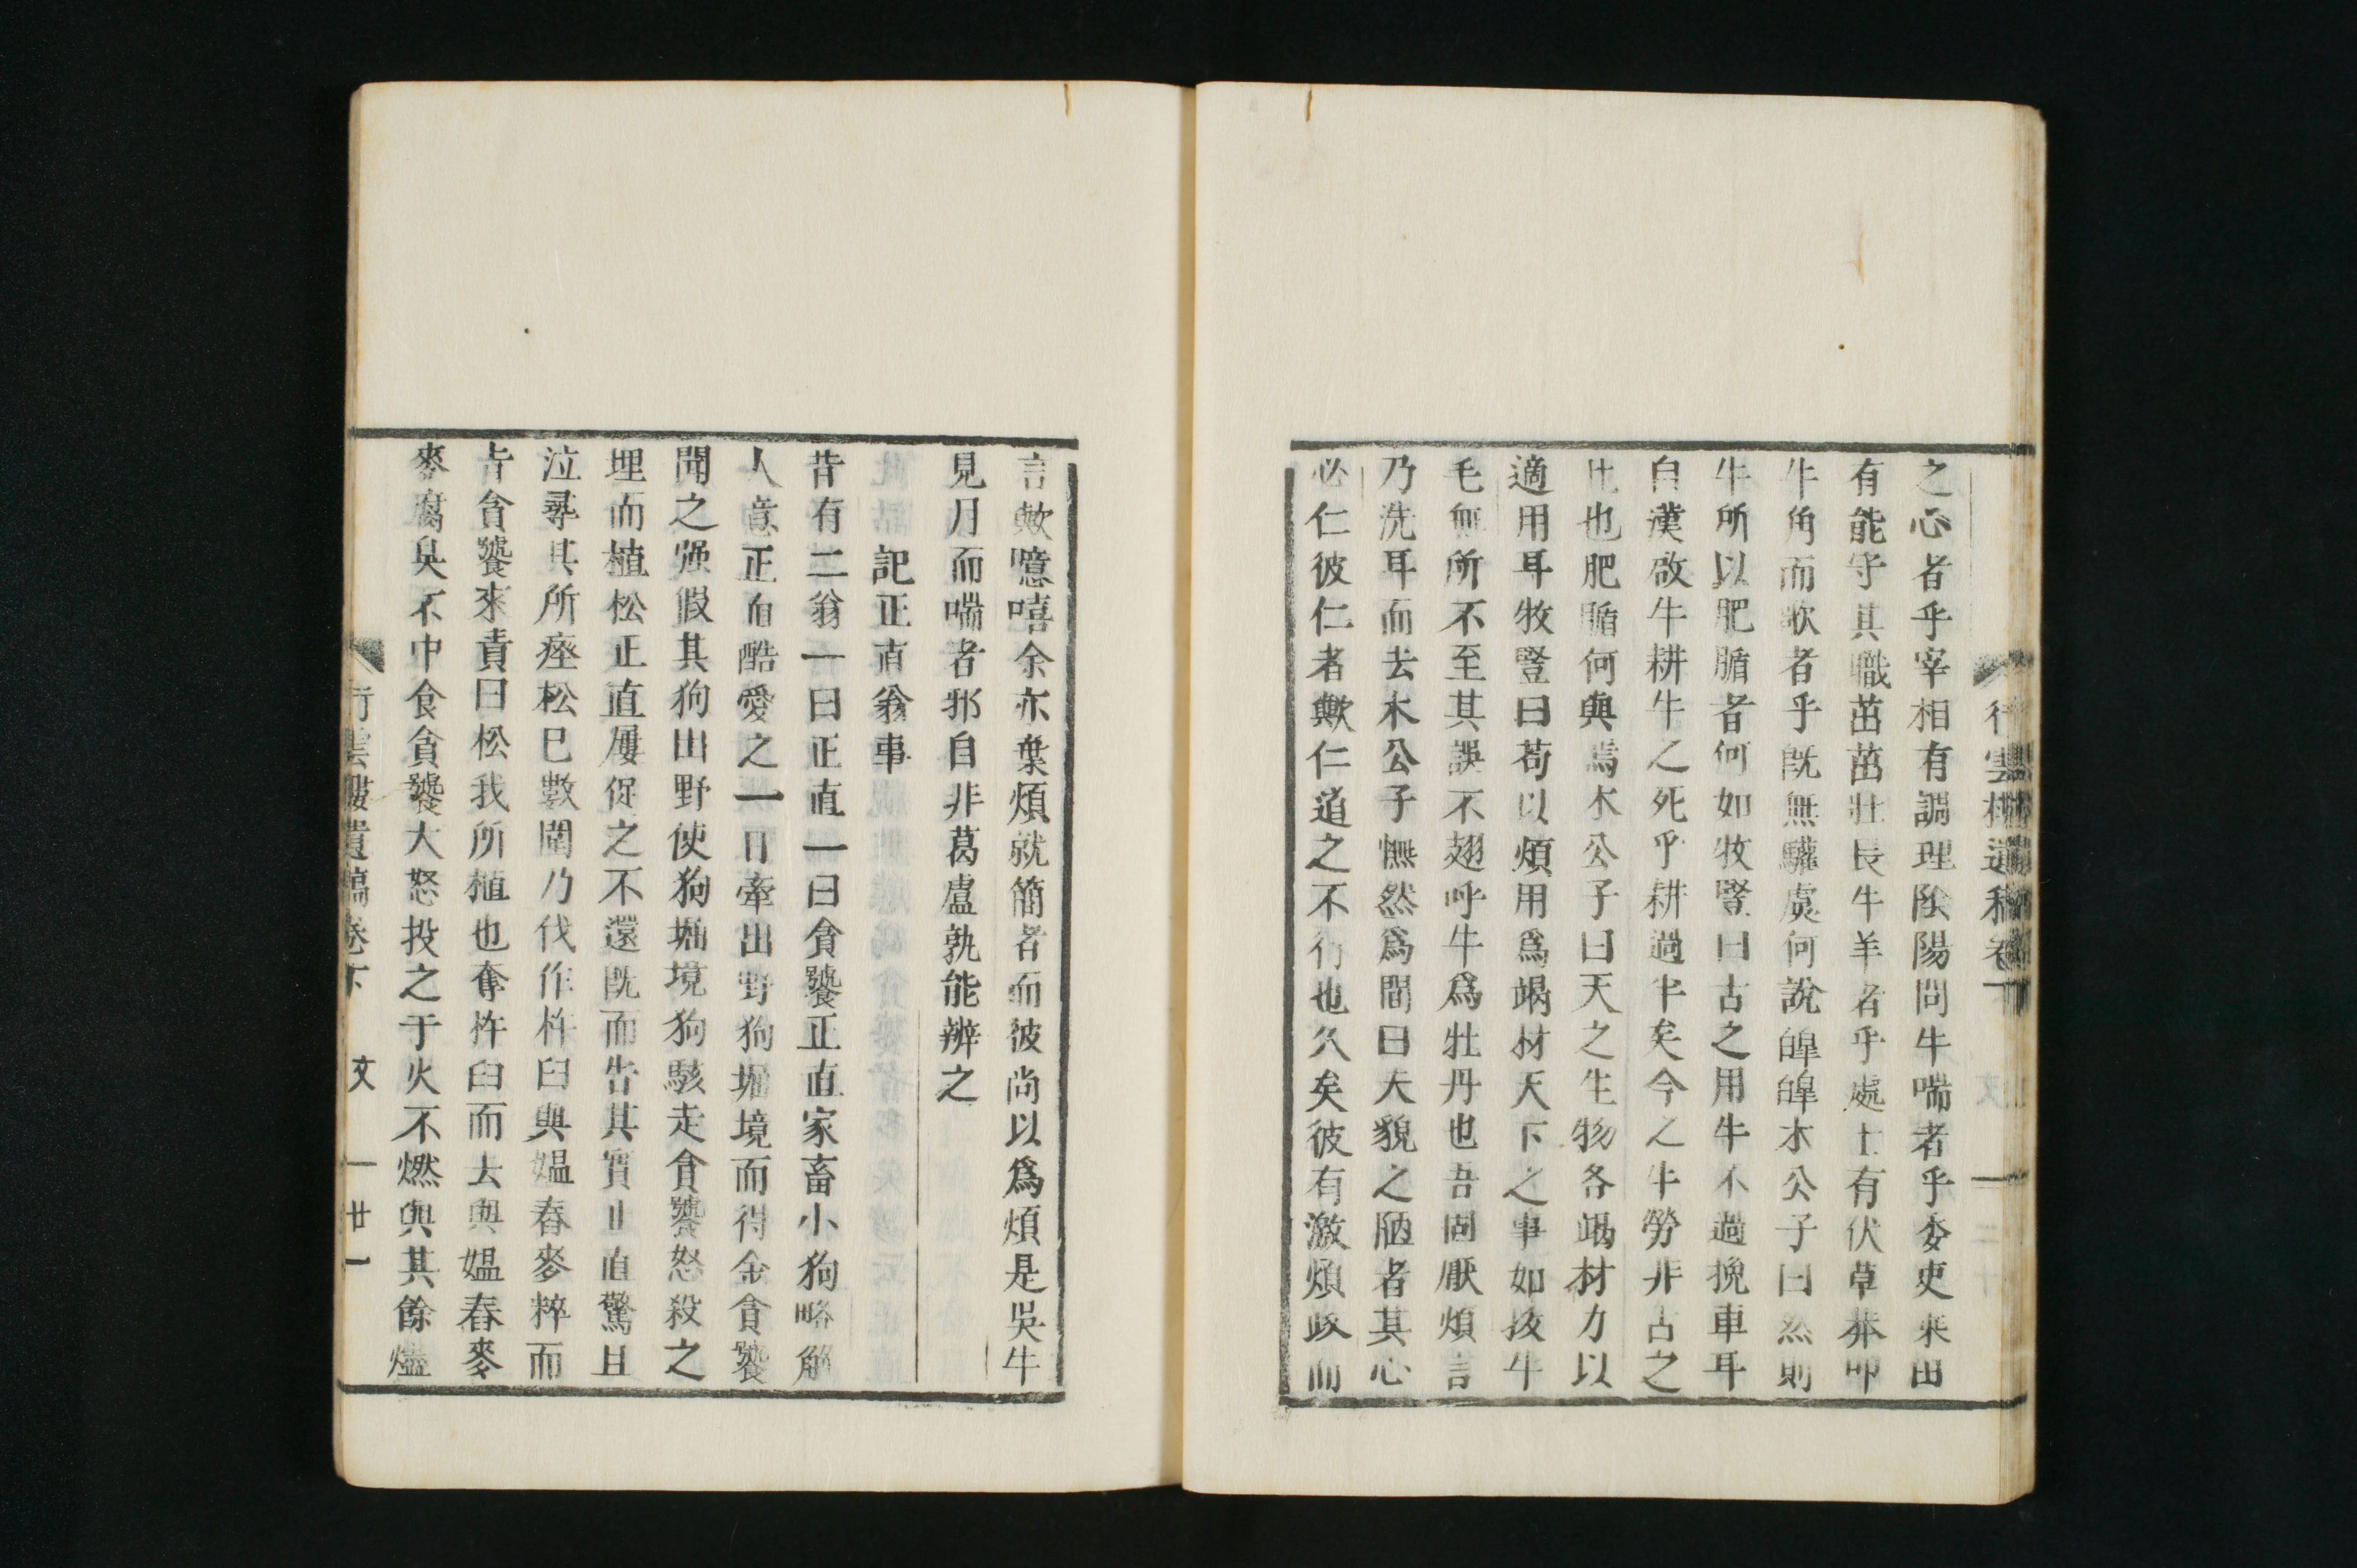 之心者乎宰相有調理陰陽問牛喘者乎委吏乘田
有能守其職茁茁壯長牛羊者乎處士有伏草莽叩
牛角而歌者乎既無驩虞何說皡皡木公子曰然則
牛所以肥腯者何如牧豎曰古之用牛不過挽車耳
自漢啟牛耕牛之死乎耕過半矣今之牛勞非古之
比也肥腯何與焉木公子曰天之生物各竭材力以
適用耳牧豎曰苟以煩用爲竭材天下之事如拔牛
毛無所不至其誤不翅呼牛爲牡丹也吾固厭煩言
乃洗耳而去木公子憮然爲間曰夫貌之陋者其心
必仁彼仁者歟仁道之不行也久矣彼有激煩政而
言歟噫嘻余亦棄煩就簡者而彼尚以爲煩是吳牛
見月而喘者邪自非葛盧孰能辨之
記正直翁事
昔有二翁一曰正直一曰貪饕正直家畜小狗略解
人意正直酷愛之一日牽出野狗堀境而得金貪饕
聞之强假其狗出野使狗堀境狗駭走貪饕怒殺之
埋而植松正直屢促之不還既而告其實正直驚且
泣尋其所瘞松巳數圍乃伐作杵臼與媼舂麥粹而
吉貪饕來責曰松我所植也奪杵臼而去與媼舂麥
麥腐臭不中食貪饕大怒投之于火不燃與其餘燼
行雲樓遺稿卷下 文 一 廿一